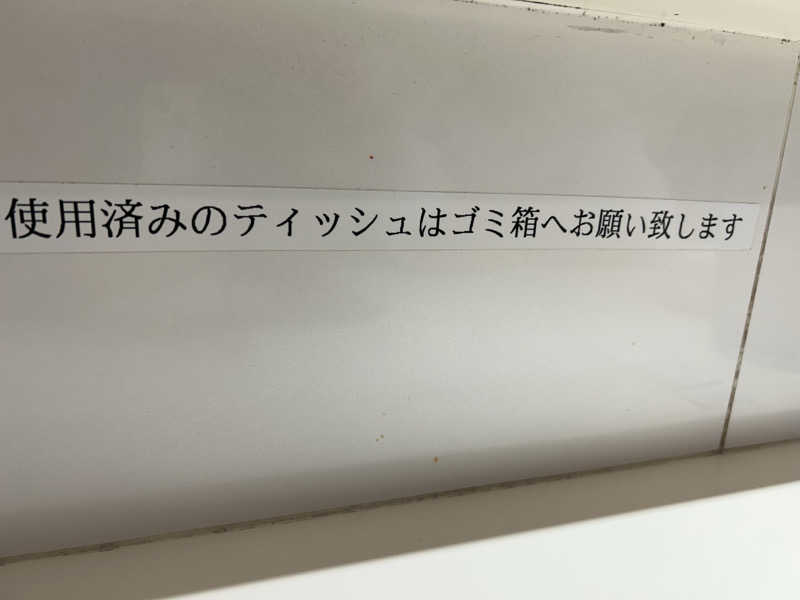 使用済みのティッシュはゴミ箱へお願い致します